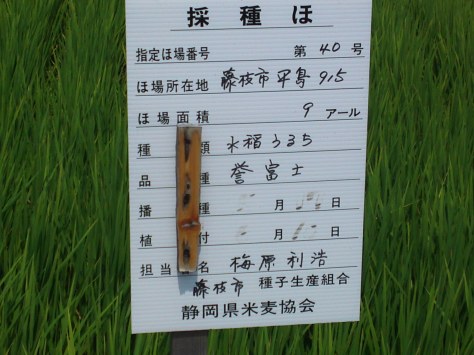 採種ほ
指定ほ場番号 第 40 号
ほ場所在地 藤枝市平島 915
ほ場面積 9 アール
種 類 水稲うるち
品 種 誉富士
播 種 月 日
植 付 月 日
担当 名 梅原利浩
藤枝市 種子生産組合
静岡県米麦協会